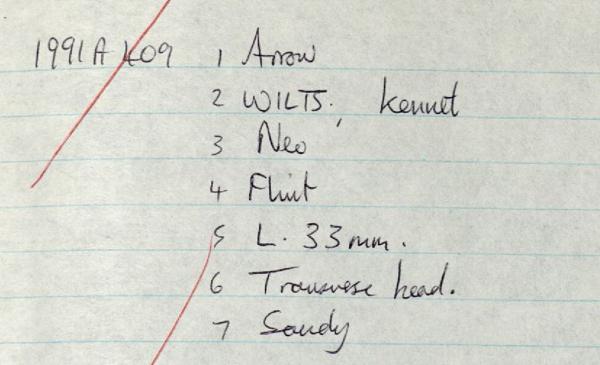 1991A 409 1 Arrow
2 WILTS, Kennet
3 Neo
4 Flint
5 L. 33mm.
6 Transvese head.
7 Sandy